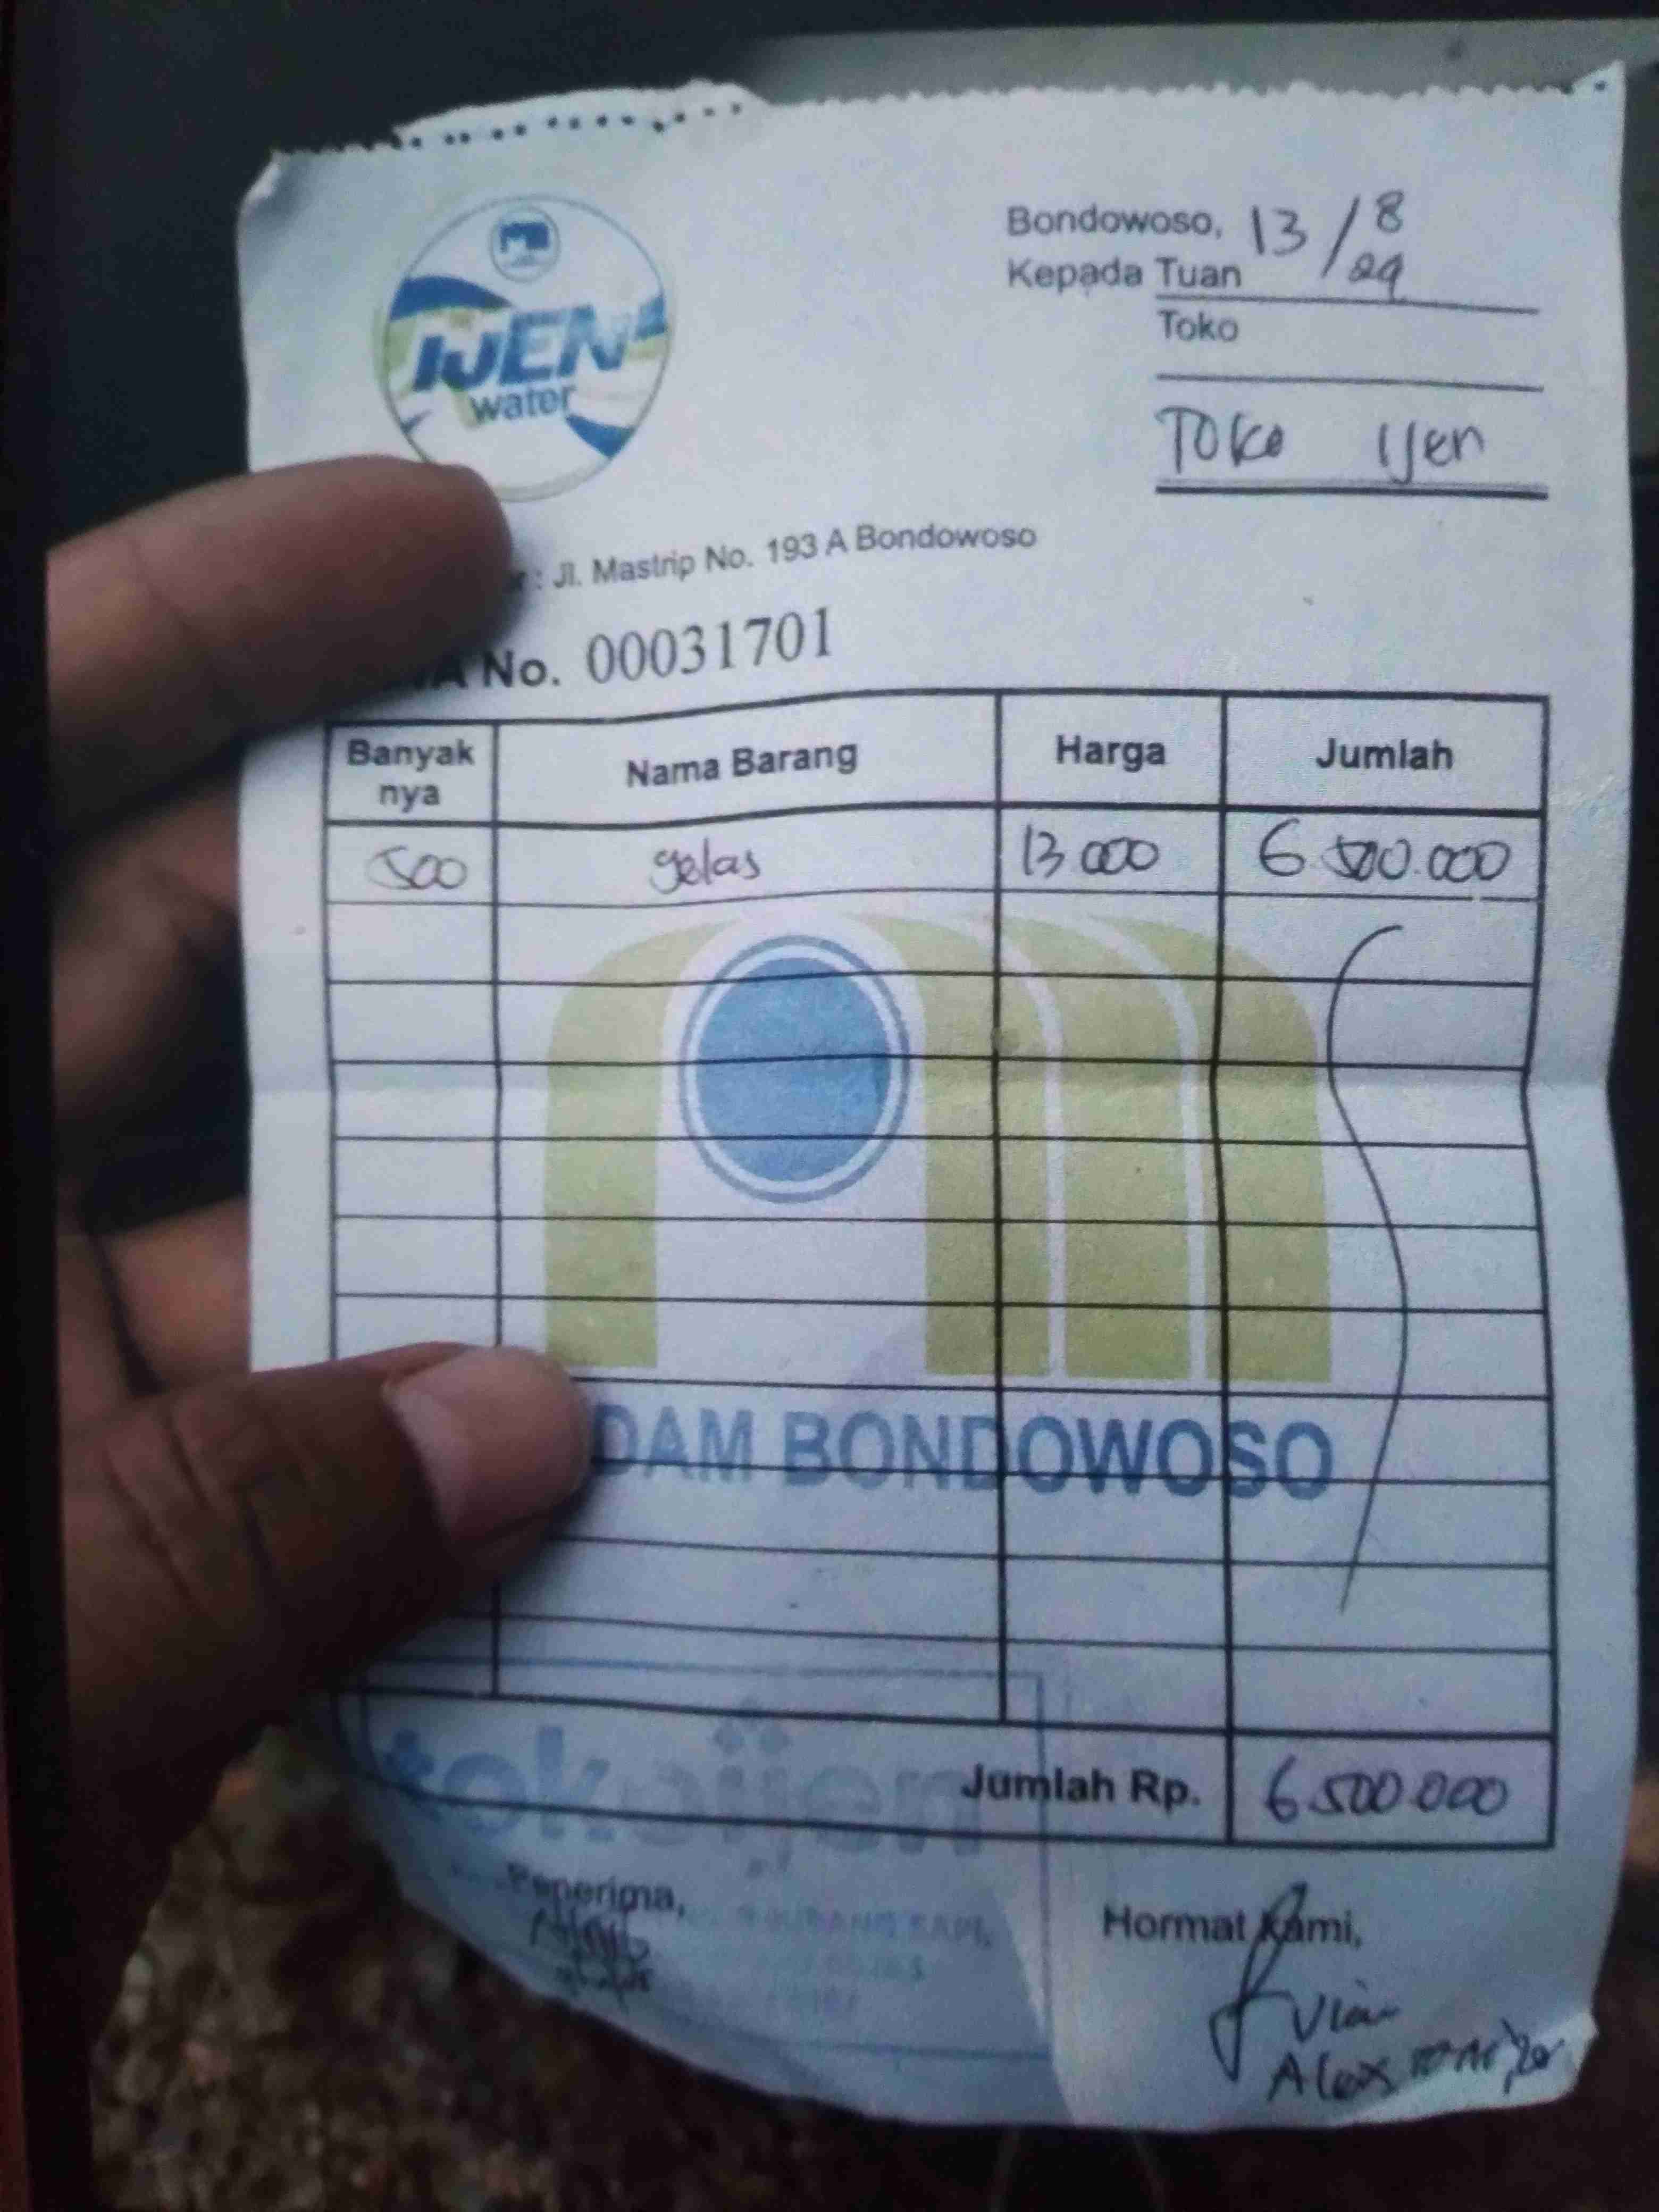 IJEN
water
Bondowoso, 13/8
Kepada Tuan
Toko
Toko Ijen
: Jl. Mastrip No. 193 A Bondowoso
A No. 00031701
Banyak nya Nama Barang Harga Jumlah
500 gelas 13 000 6 500.000
DAM BONDOWOSO
tokoijen
Jumlah Rp. 6.500.000
Penerima,
Hormat kami,